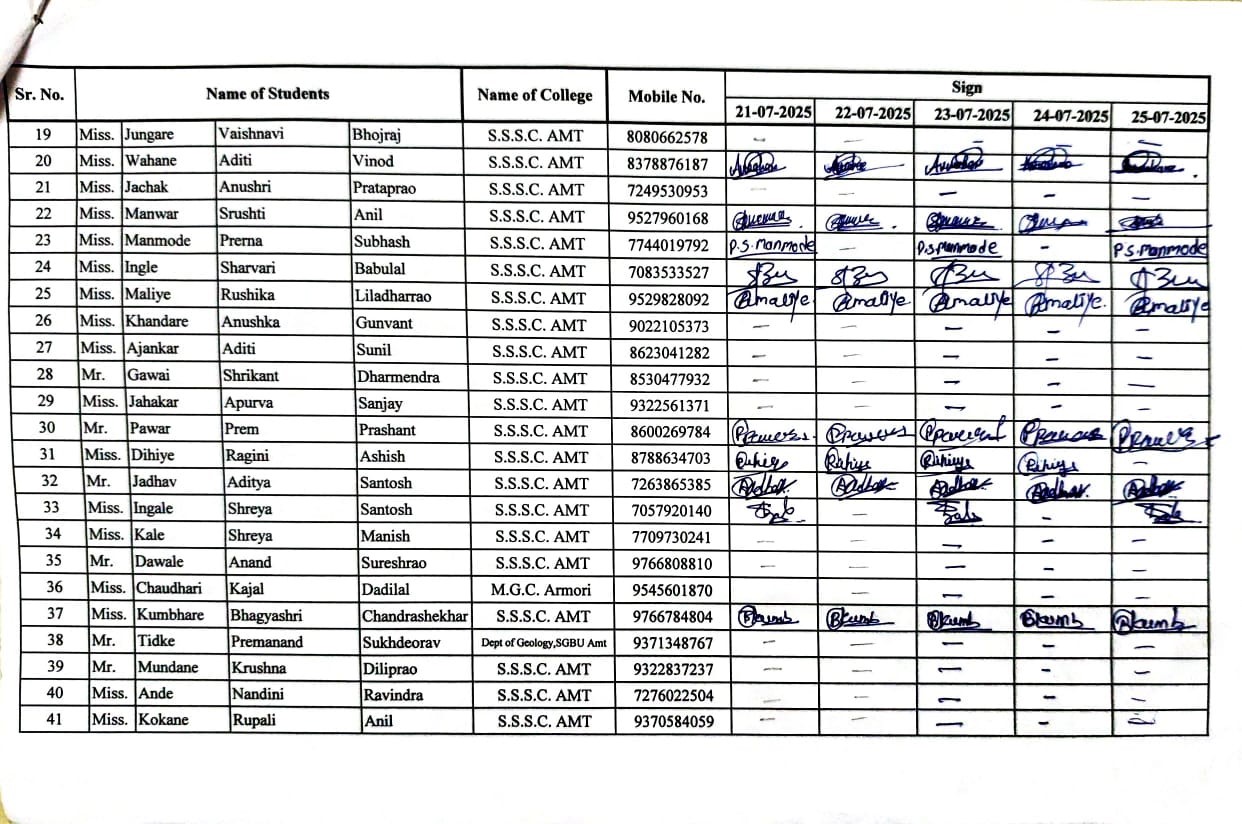 Sr. No. Name of Students Name of College Mobile No. Sign
21-07-2025 22-07-2025 23-07-2025 24-07-2025 25-07-2025
19 Miss. Jungare Vaishnavi Bhojraj S.S.S.C. AMT 8080662578 - - - - -
20 Miss. Wahane Aditi Vinod S.S.S.C. AMT 8378876187
21 Miss. Jachak Anushri Prataprao S.S.S.C. AMT 7249530953 - - - - -
22 Miss. Manwar Srushti Anil S.S.S.C. AMT 9527960168
23 Miss. Manmode Prerna Subhash S.S.S.C. AMT 7744019792 P.S.Manmode - P.S.Manmode - P.S.Manmode
24 Miss. Ingle Sharvari Babulal S.S.S.C. AMT 7083533527
25 Miss. Maliye Rushika Liladharrao S.S.S.C. AMT 9529828092 Rmaliye Rmaliye. Rmaliye Rmaliye. Rmaliye
26 Miss. Khandare Anushka Gunvant S.S.S.C. AMT 9022105373 - - - - -
27 Miss. Ajankar Aditi Sunil S.S.S.C. AMT 8623041282 - - - - -
28 Mr. Gawai Shrikant Dharmendra S.S.S.C. AMT 8530477932 - - - - -
29 Miss. Jahakar Apurva Sanjay S.S.S.C. AMT 9322561371 - - - - -
30 Mr. Pawar Prem Prashant S.S.S.C. AMT 8600269784
31 Miss. Dihiye Ragini Ashish S.S.S.C. AMT 8788634703 -
32 Mr. Jadhav Aditya Santosh S.S.S.C. AMT 7263865385
33 Miss. Ingale Shreya Santosh S.S.S.C. AMT 7057920140 - -
34 Miss. Kale Shreya Manish S.S.S.C. AMT 7709730241 - - - - -
35 Mr. Dawale Anand Sureshrao S.S.S.C. AMT 9766808810 - - - - -
36 Miss. Chaudhari Kajal Dadilal M.G.C. Armori 9545601870 - - - - -
37 Miss. Kumbhare Bhagyashri Chandrashekhar S.S.S.C. AMT 9766784804 Bkumb Bkumb Bkumb Bkumb Bkumb
38 Mr. Tidke Premanand Sukhdeorav Dept of Geology,SGBU Amt 9371348767 - - - - -
39 Mr. Mundane Krushna Diliprao S.S.S.C. AMT 9322837237 - - - - -
40 Miss. Ande Nandini Ravindra S.S.S.C. AMT 7276022504 - - - - -
41 Miss. Kokane Rupali Anil S.S.S.C. AMT 9370584059 - - - - -